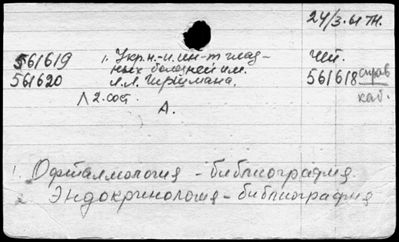 24/3.61 тн.
561619
561620
1. Укр. н.-и. ин-т глаз-
ных болезней им.
Л.Л. Гиршмана.
Л 2. сост.
А.
Чит.
561618 справ
каб.
1. Офталмология - библиография.
2. Эндокринология - библиография